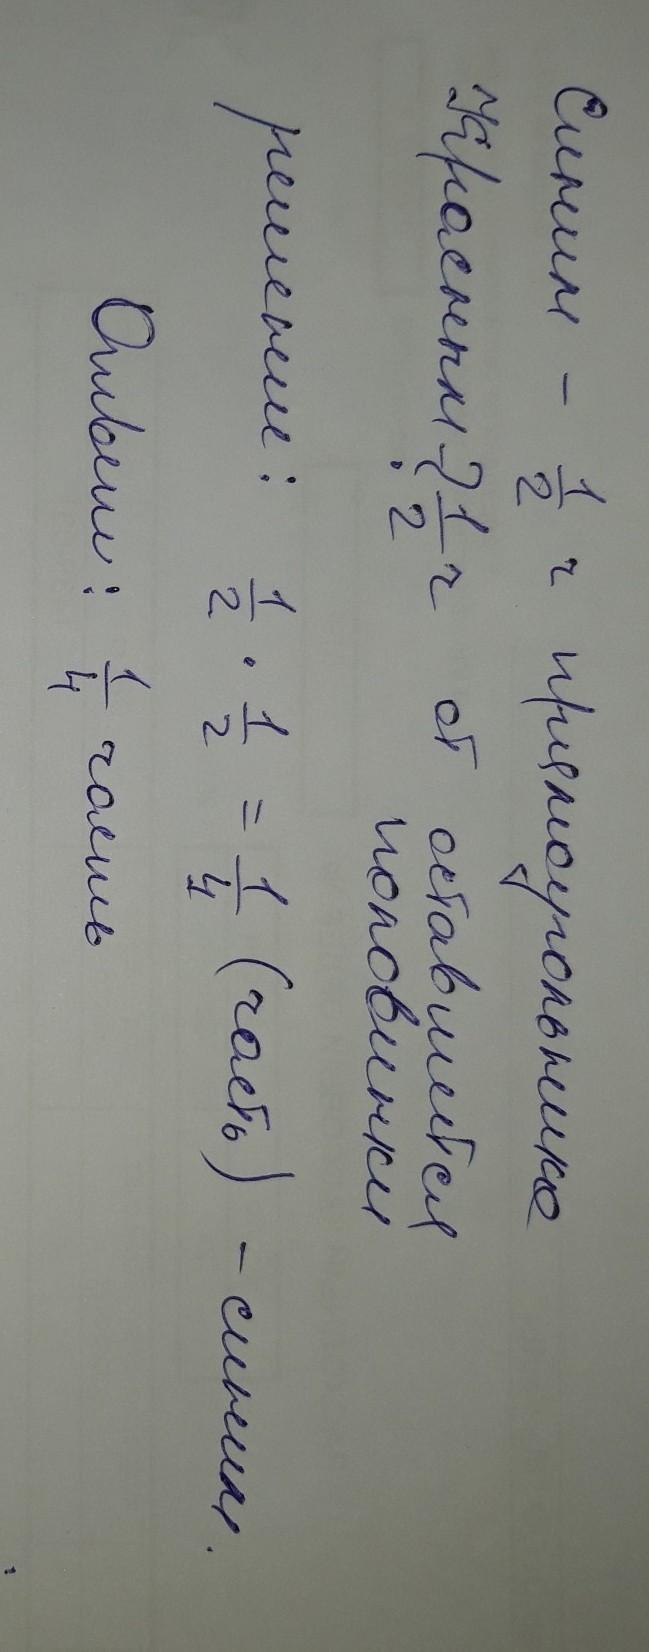 Синим - 1/2 ч прямоугольника
Красным - ? 1/2 ч от оставшейся
половинки
решение: 1/2 · 1/2 = 1/4 (часть) - синим.
Ответ: 1/4 часть